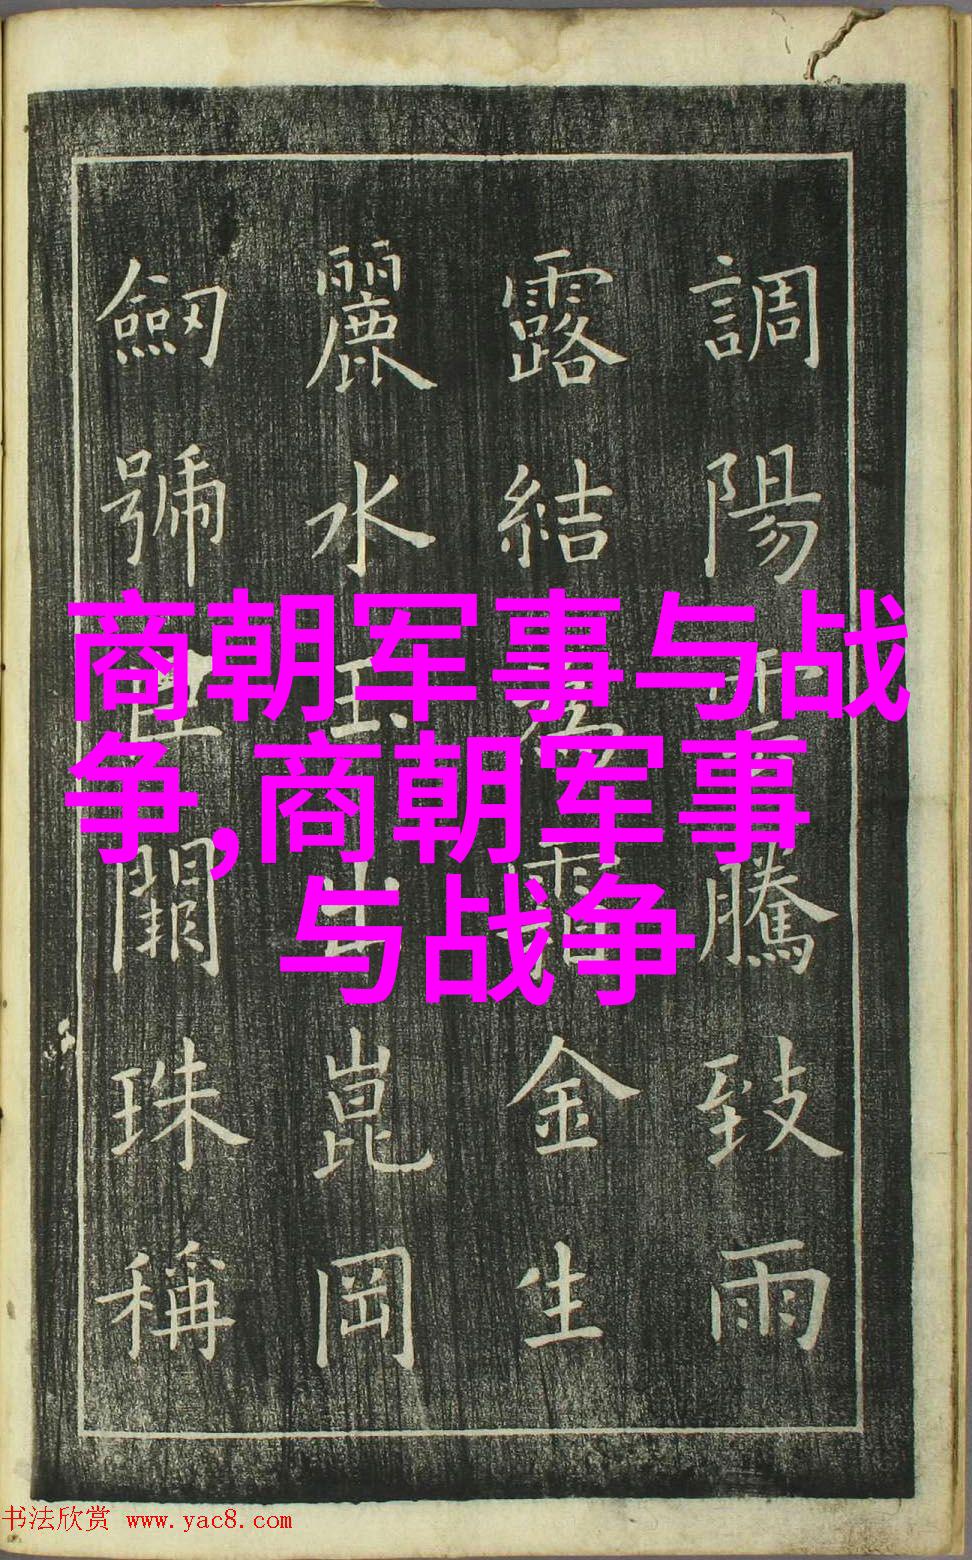 調陽雲騰致雨
露結爲霜金生
麗水玉出崑岡
劒號巨闕珠稱
商朝军事与战
争,商朝军事
与战争
书法欣赏 www.yac8.com